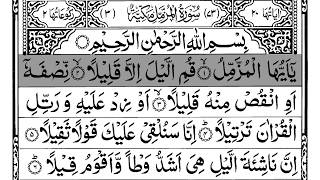 اٰيَاتُهَا ٢٠ (٧٣) سُوْرَةُ الْمُزَّمِّلِ مَكِّيَّةٌ (٣) رُكُوْعَاتُهَا ٢
بِسْمِ اللهِ الرَّحْمٰنِ الرَّحِيْمِ
يٰٓاَيُّهَا الْمُزَّمِّلُ ۙ قُمِ الَّيْلَ اِلَّا قَلِيْلًا ۙ نِّصْفَهٗٓ
اَوِ انْقُصْ مِنْهُ قَلِيْلًا ۙ اَوْ زِدْ عَلَيْهِ وَ رَتِّلِ
الْقُرْاٰنَ تَرْتِيْلًا ؕ اِنَّا سَنُلْقِيْ عَلَيْكَ قَوْلًا ثَقِيْلًا
اِنَّ نَاشِئَةَ الَّيْلِ هِيَ اَشَدُّ وَطْاً وَّ اَقْوَمُ قِيْلًا ؕ